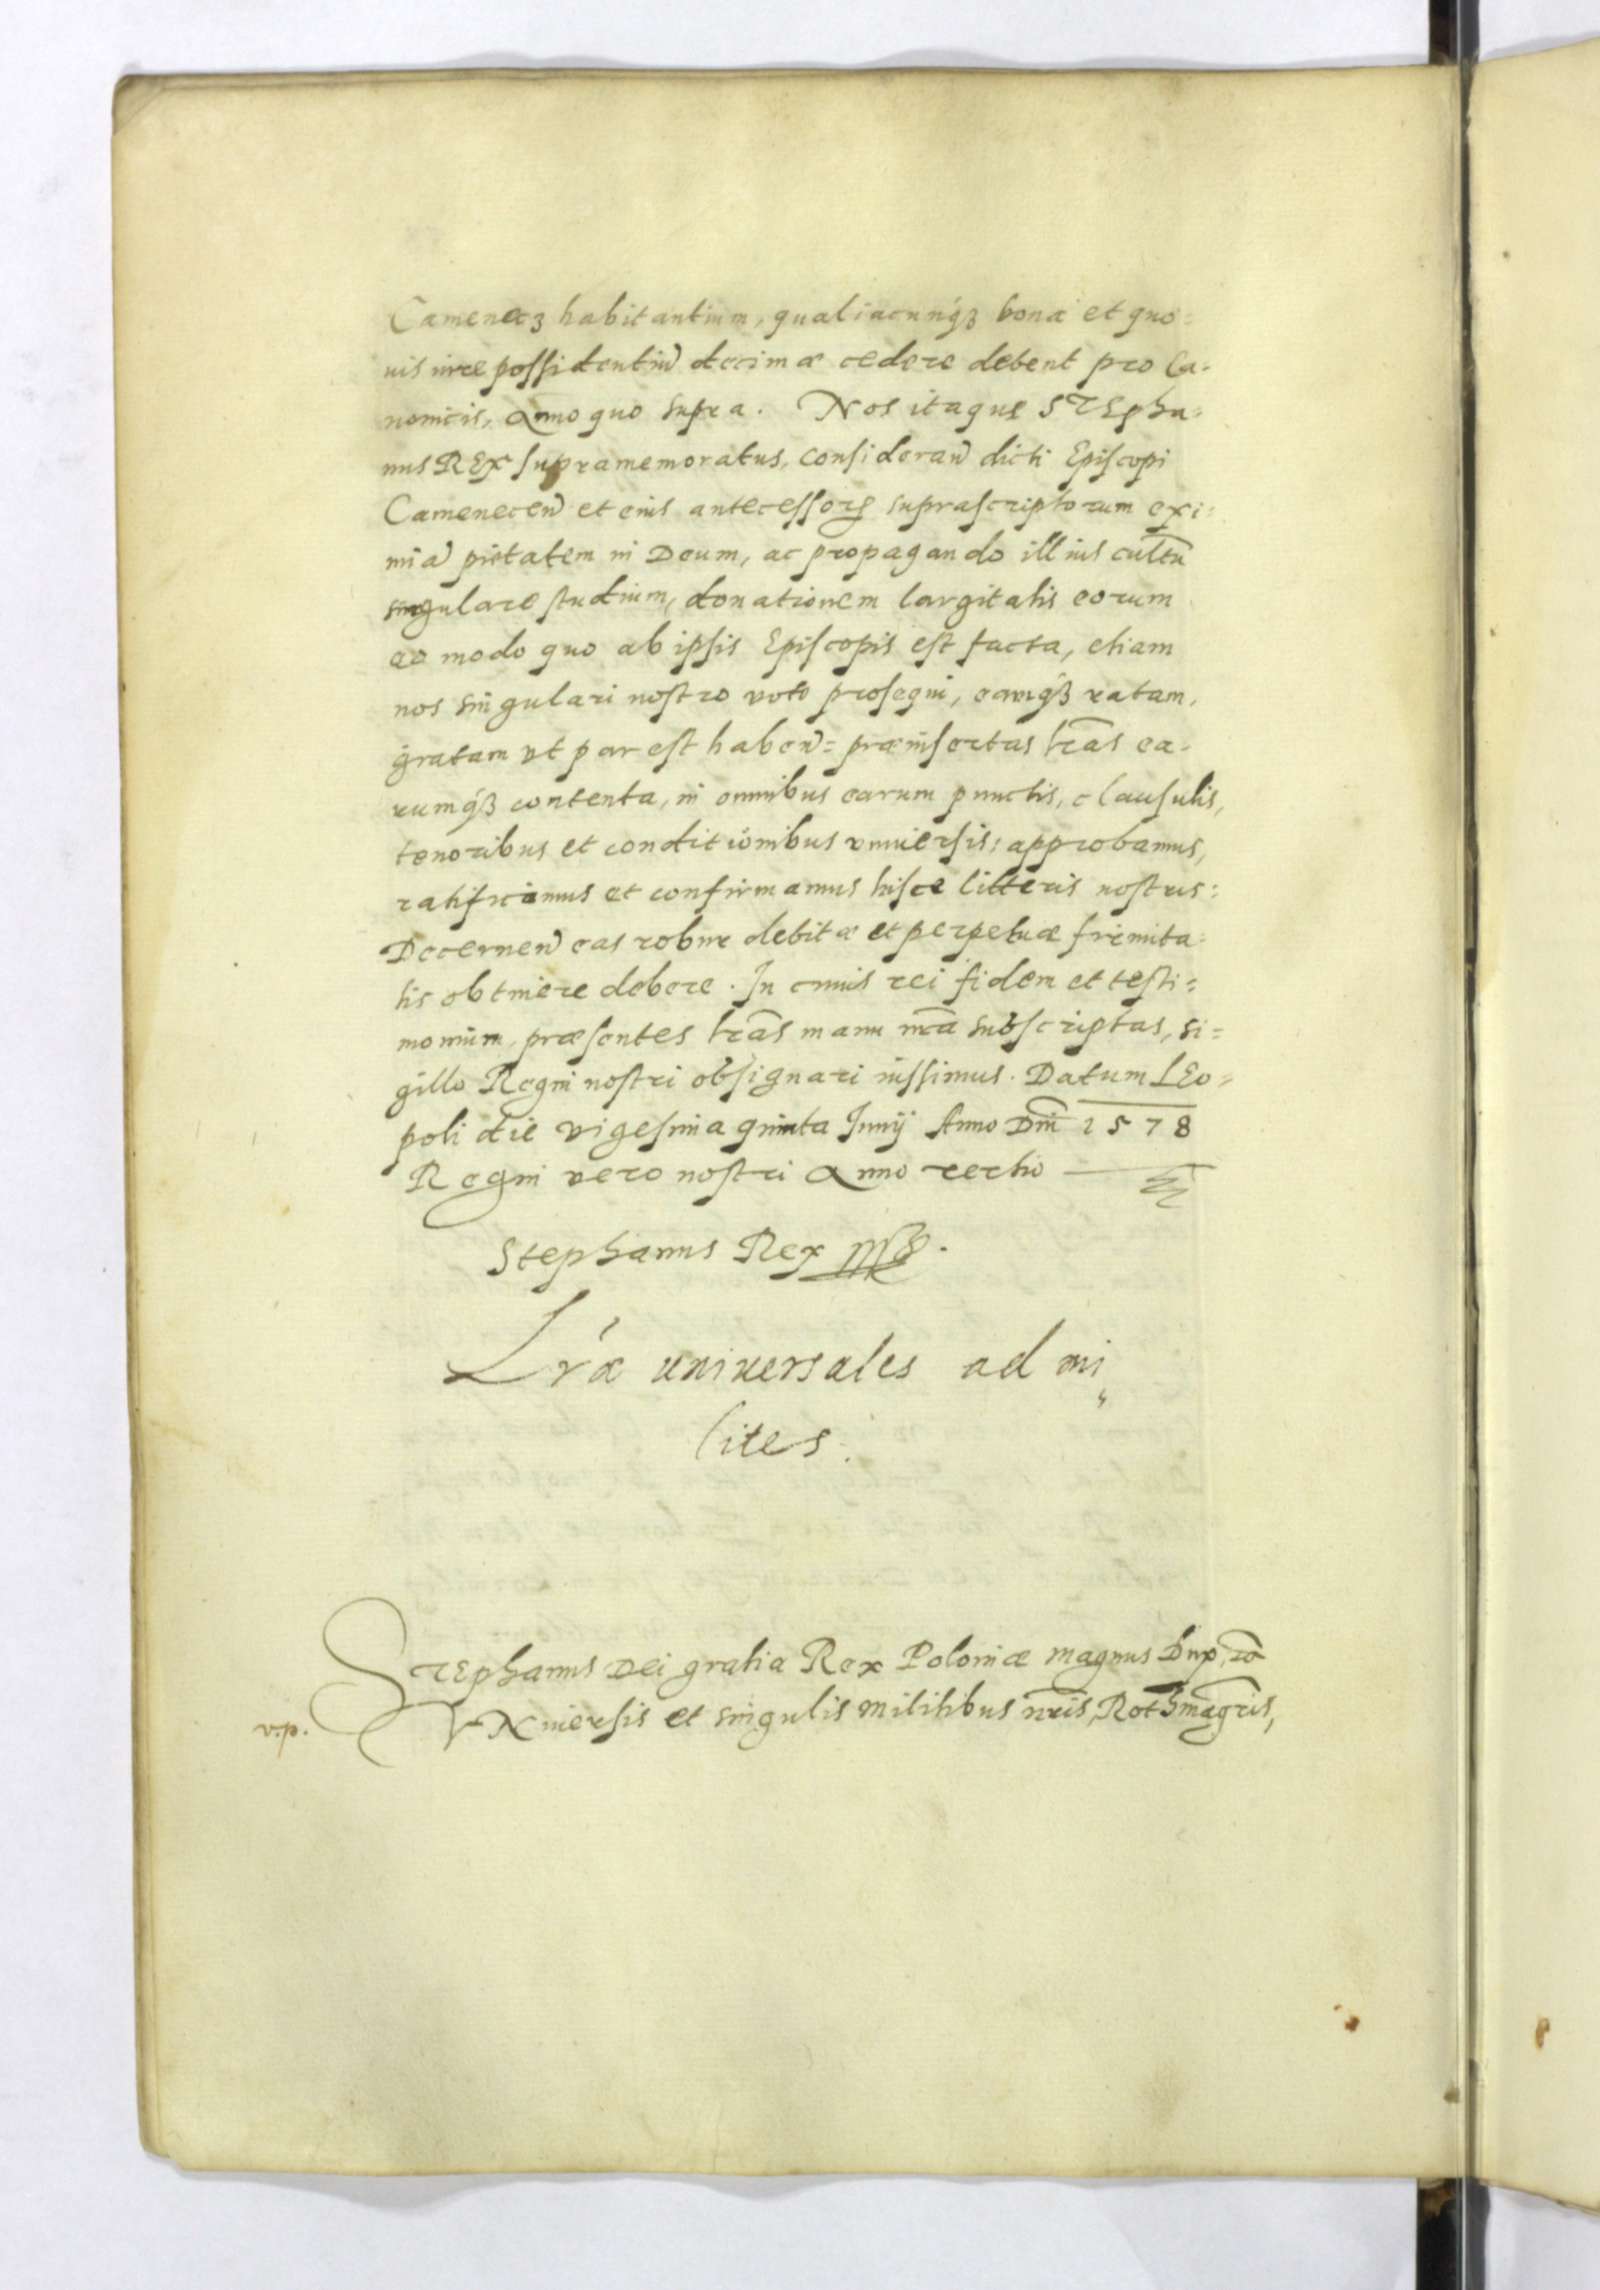 Camenecz habitantium, qualiacunq3 bona et quo=
uis iure possidentiū decimæ cedere debent pro Ca=
nonicis, Anno quo supra. Nos itaque STEpha=
nus REX supramemoratus, consideran̄ dicti Episcopi
Camenecen̄ et eius antecessorꝝ suprascriptorum exi=
miā pietatem in Deum, ac propagando illius cultū
singulare studium, donationem largitatis eorum
eo modo quo ab ipsis Episcopis est facta, etiam
nos singulari nostro voto prosequi, eamq3 ratam,
gratam vt par est haben̄= præinsertas l̄r̄as ea=
rumq3 contenta, in omnibus earum punctis, clausulis,
tenoribus et conditionibus vniuersis: approbamus,
ratificamus et confirmamus hisce litteris nostris:
Decernen̄ eas robur debitæ et perpetuæ firmita=
tis obtinere debere. In cuius rei fidem et testi=
monium, præsentes l̄r̄as manu n̄r̄a subscriptas, si=
gillo Regni nostri obsignari iussimus. Datum LEo=
poli die vigesima quinta Iunij Anno Dn̄i 1578
Regni vero nostri Anno tertio
Stephanus Rex
Lr̄æ uniuersales ad mi„
lites.
STEphanus Dei gratia Rex Poloniæ Magnus Dux, r̄o
v.p. VNiuersis et singulis Militibus n̄r̄is, Rothmagr̄is,